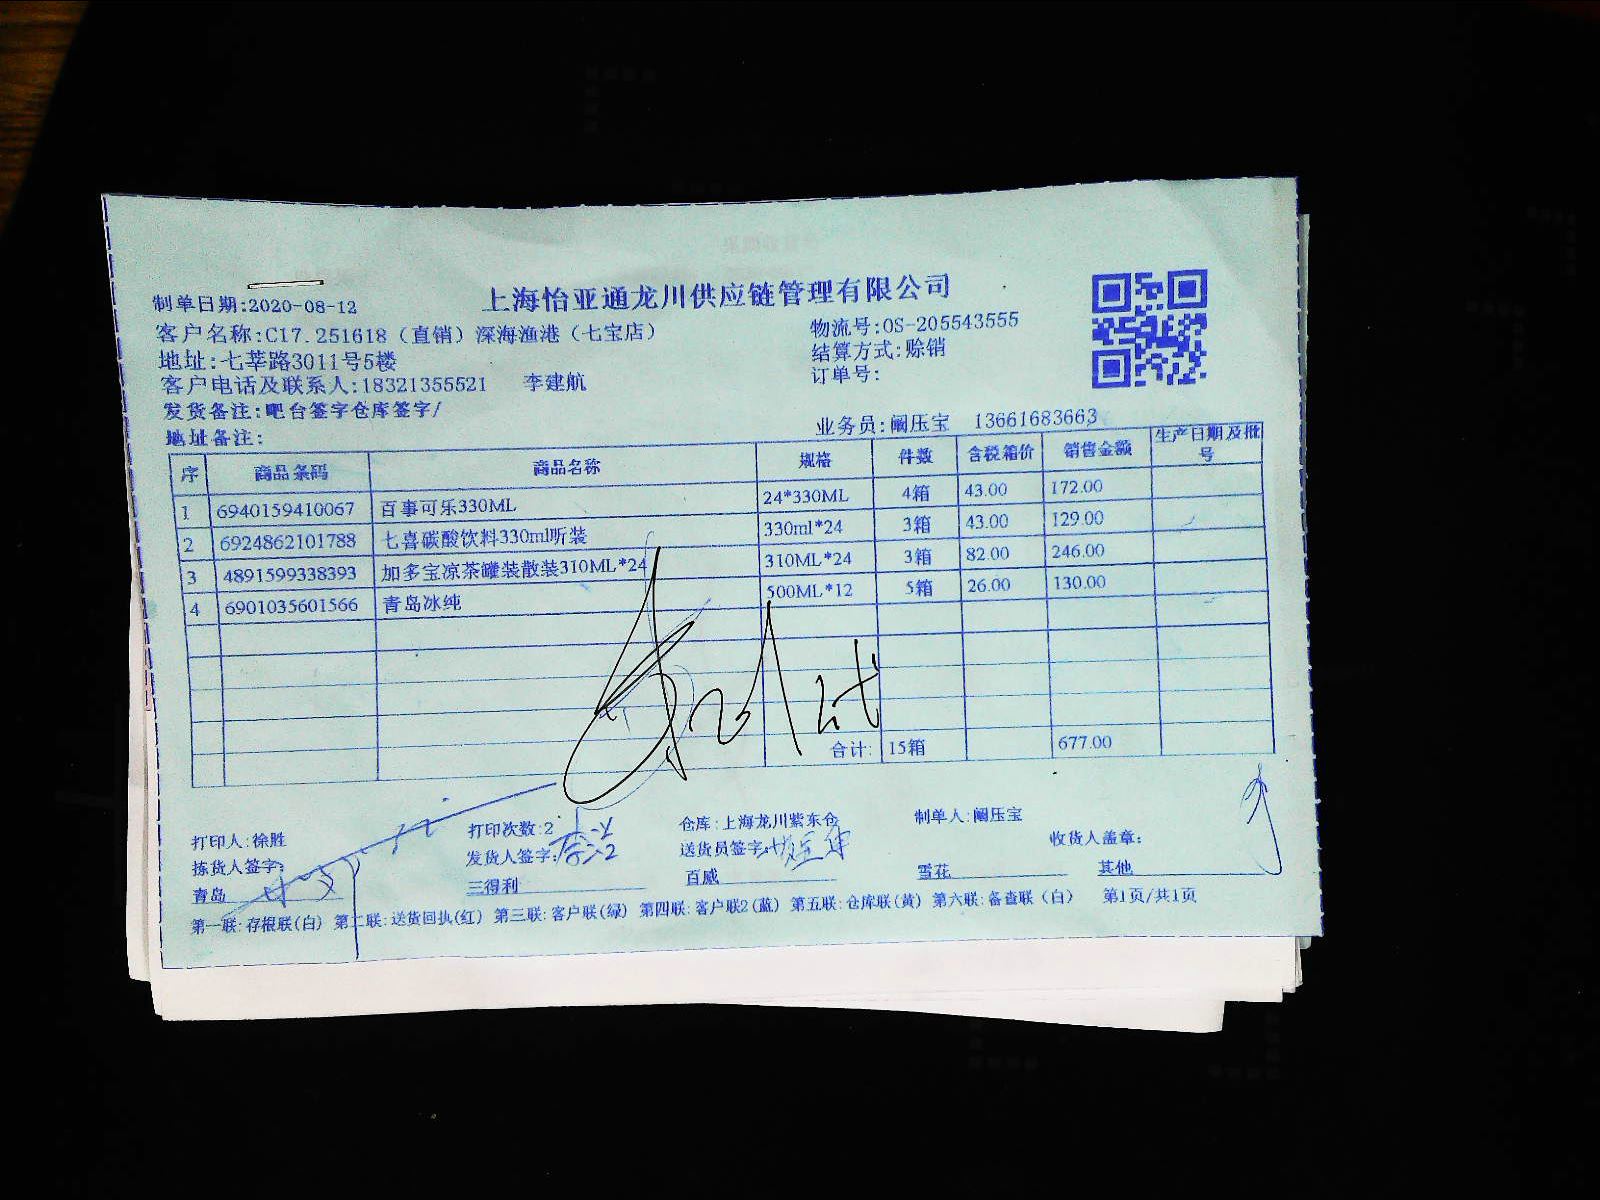 上海怡亚通龙川供应链管理有限公司
制单日期:2020-08-12
客户名称:C17.251618（直销）深海渔港（七宝店）
物流号:OS-205543555
地址:七莘路3011号5楼
结算方式:赊销
客户电话及联系人:18321355521 李建航
订单号:
发货备注:吧台签字仓库签字/
地址备注:
业务员:阚压宝 13661683663
序 商品条码 商品名称 规格 件数 含税箱价 销售金额 生产日期及批号
1 6940159410067 百事可乐330ML 24*330ML 4箱 43.00 172.00
2 6924862101788 七喜碳酸饮料330ml听装 330ml*24 3箱 43.00 129.00
3 4891599338393 加多宝凉茶罐装散装310ML*24 310ML*24 3箱 82.00 246.00
4 6901035601566 青岛冰纯 500ML*12 5箱 26.00 130.00
合计: 15箱 677.00
打印人:徐胜 打印次数:2 仓库:上海龙川紫东仓 制单人:阚压宝
拣货人签字: 发货人签字: 送货员签字: 收货人盖章:
青岛 三得利 百威 雪花 其他
第一联:存根联(白) 第二联:送货回执(红) 第三联:客户联(绿) 第四联:客户联2(蓝) 第五联:仓库联(黄) 第六联:备查联（白） 第1页/共1页